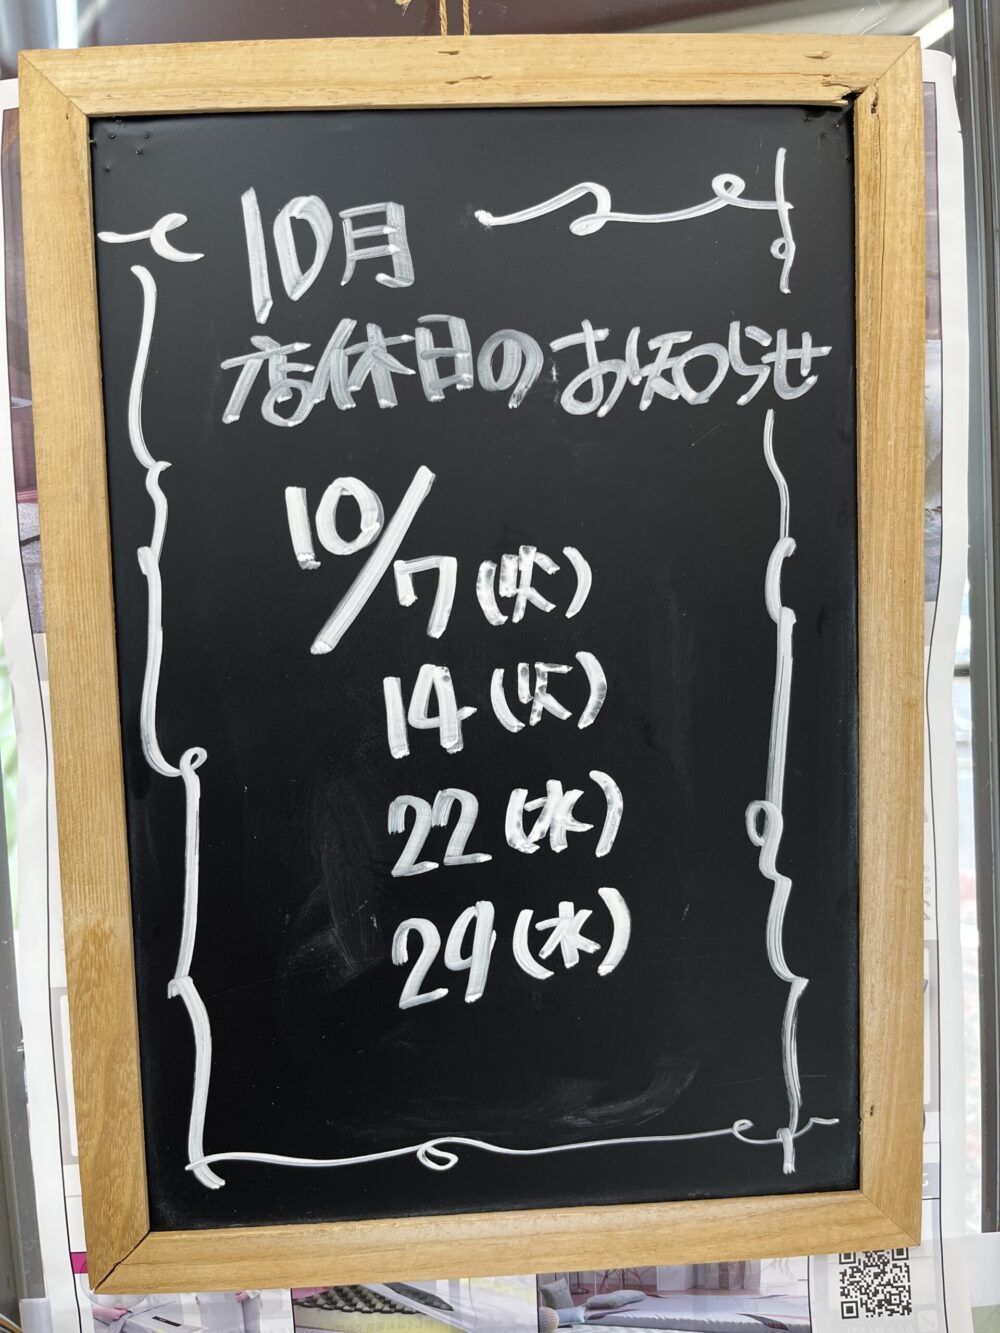 10月
店休日のお知らせ
10/7(火)
14(火)
22(水)
29(水)